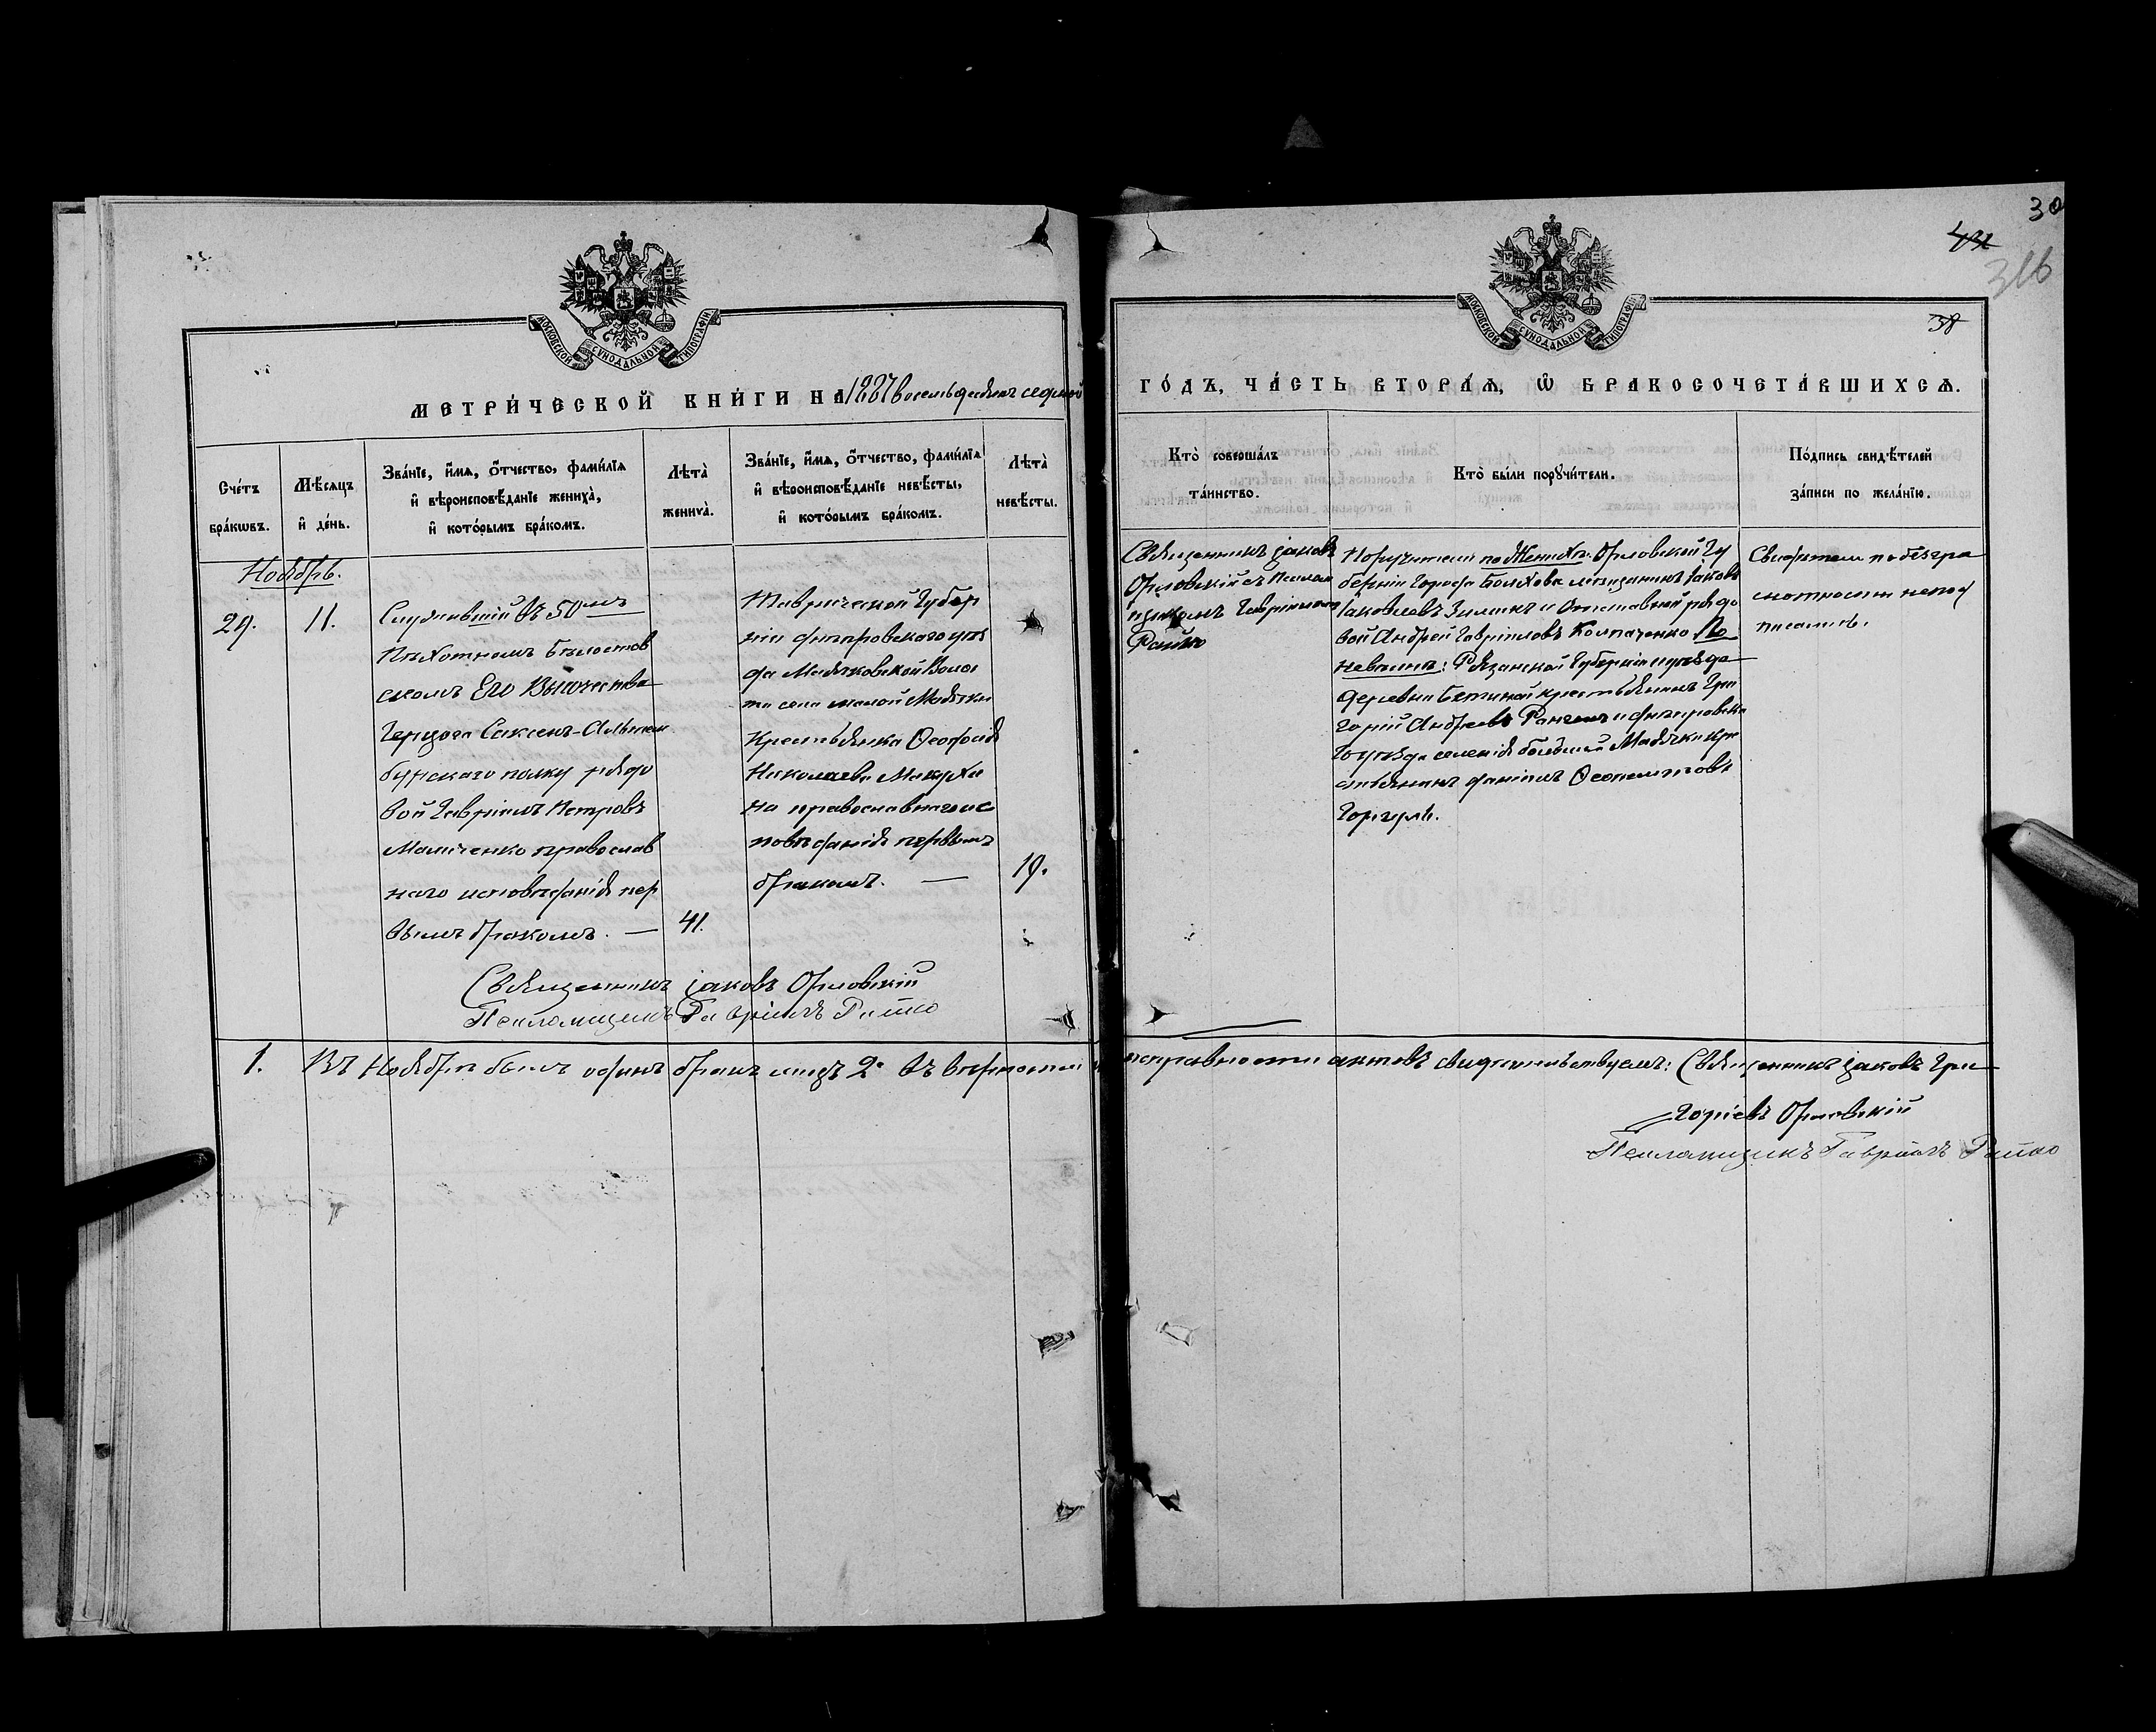 30
31б
38
МОСКОВСКОЙ СѴНОДАЛЬНОЙ ТИПОГРАФІИ
МОСКОВСКОЙ СѴНОДАЛЬНОЙ ТИПОГРАФІИ
МЕТРИ́ЧЕСКОЙ КНИ́ГИ НА 1887 восемьдесятъ седьмой
ГО́ДЪ, ЧА́СТЬ ВТОРА́Ѧ, Ѽ БРАКОСОЧЕТА́ВШИХСѦ.
Сче́тъ бра́кѡвъ.
Мѣ́сѧцъ и҆ де́нь.
Зва́нїе, и҆́мѧ, ѻ҆́тчество, фами́лїѧ
и҆ вѣроисповѣ́данїе жениха̀,
и҆ кото́рымъ бра́комъ.
Лѣта̀ жениха̀.
Зва́нїе, и҆́мѧ, ѻ҆́тчество, фами́лїѧ
и҆ вѣроисповѣ́данїе невѣ́сты,
и҆ кото́рымъ бра́комъ.
Лѣта̀ невѣ́сты.
Кто̀ соверша́лъ
та́инство.
Кто̀ бы́ли порꙋчи́тели.
По́дпись свидѣ́телей
за́писи по жела́нїю.
Ноябрь.
29.
11.
Служившій въ 50мъ
Пѣхотномъ Бѣлосток
скомъ Его Высочества
Герцога Саксенъ-Альтен
бургскаго полку рядо
вой Гавріилъ Петровъ
Маличенко православ
наго исповѣданія пер
вымъ бракомъ. —
41.
Таврической Губер
ніи Днѣпровскаго уѣз
да Маячковской Воло
сти села малой Маячки
Крестьянка Ѳеодосія
Николаева Макуха
на православнаго ис
повѣданія первымъ
бракомъ. —
19.
Священникъ Іаковъ
Орловскій съ Псалом
щикомъ Гавріиломъ
Рашко
Поручители по Женихѣ: Орловской Гу
берніи Города Болхова мѣщанинъ Іаковъ
Іаковлевъ Зиминъ и Отставной рядо
вой Андрей Гавріиловъ Колпаченко По
невѣстѣ: Рязанской Губерніи и уѣзда
деревни крестьянинъ Гри
горій Андреевъ и Днѣпровска
го уѣзда селенія большой Маячки кре
стьянинъ Даніилъ Ѳеопемптовъ
Свидѣтели по безгра
мотности непод
писались.
Священникъ Іаковъ Орловскій
Псаломщикъ Гавріилъ Рашко
1. Въ Ноябрѣ былъ одинъ бракъ лицъ 2е въ вѣрности и исправности актовъ свидѣтельствуемъ: Священникъ Іаковъ Гри
горіевъ Орловскій
Псаломщикъ Гавріилъ Рашко